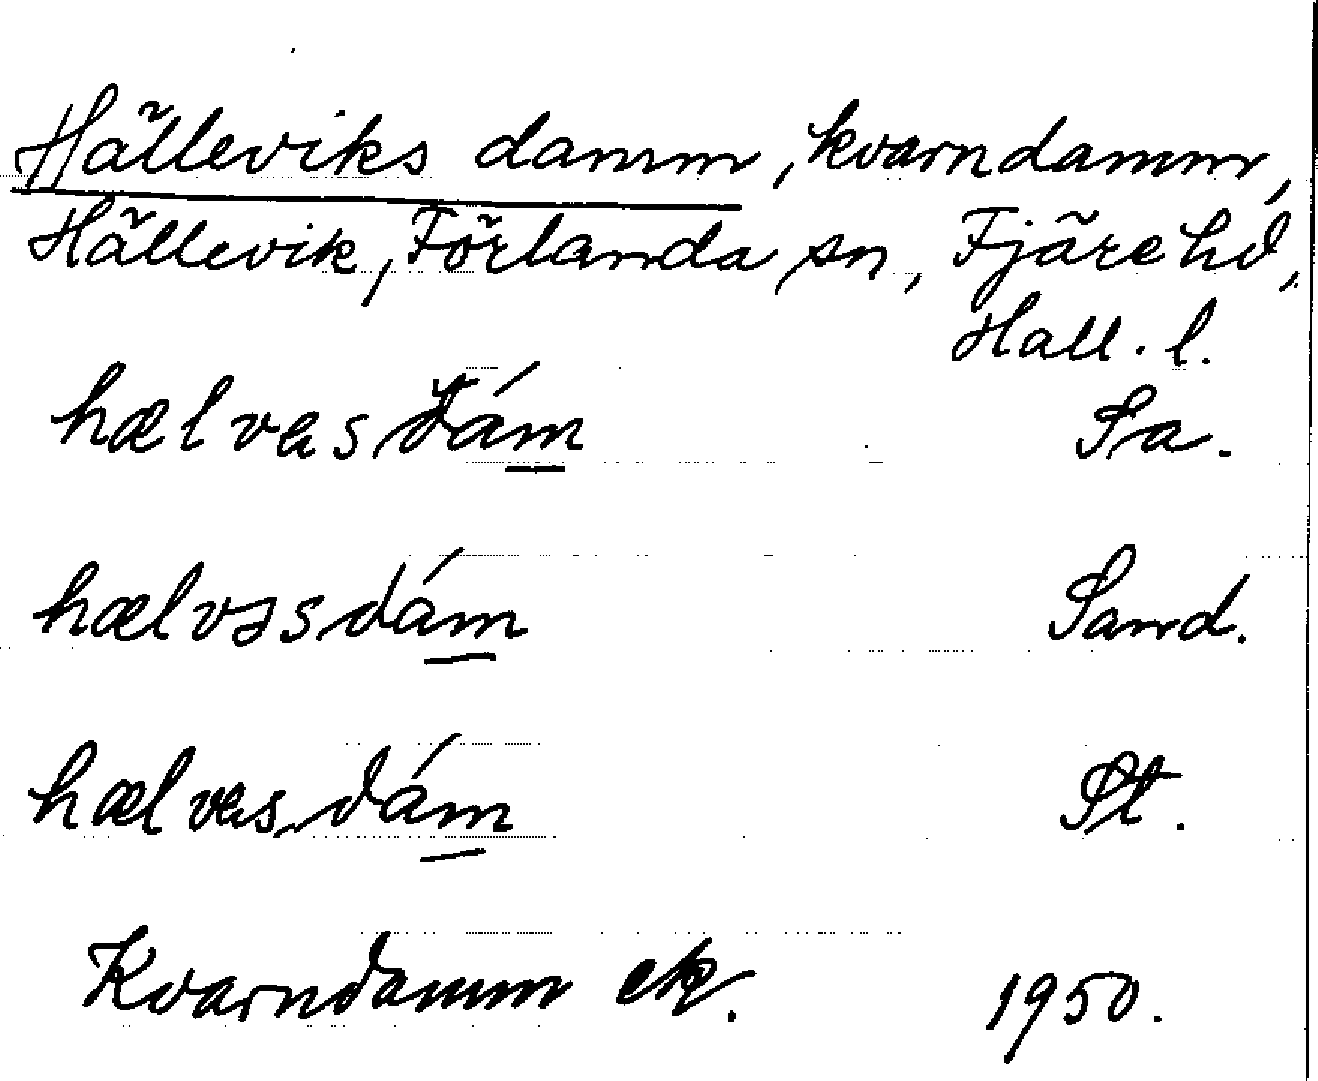 Hälleviks damm, kvarndamm,
Hällevik, Förlanda sn, Fjäre hd,
Hall. l.
hælvasdám Sa.
hælvəsdám Sand.
hælvasdám St.
Kvarndamm ek. 1950.